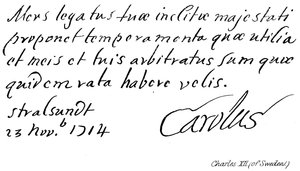 Mers legatus tuæ inclitæ majestati
proponet temperamenta quæ utilia
et meis et tuis arbitratus sum quæ
quidem rata habere velis.
stralsundt
23 Nov.b 1714
Carolus
Charles XII (of Sweden)